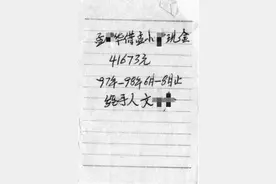 孟 华借孟小 现金
41673元
97年—98年6月—8月止
经手人文